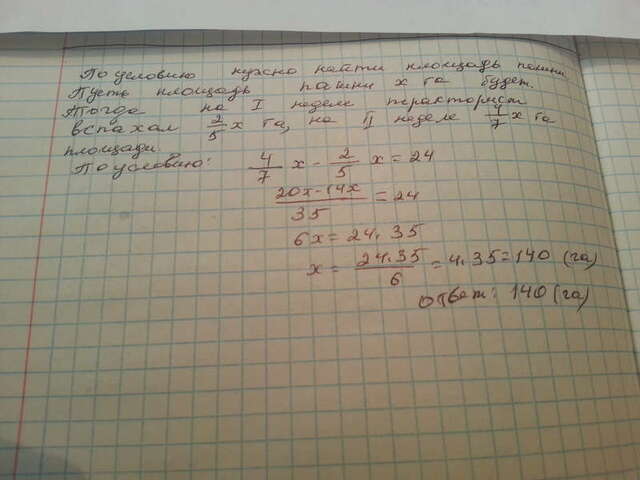 По условию нужно найти площадь пашни
Пусть площадь пашни х га будет.
Тогда на I неделе тракторист
вспахал 2/5 х га, на II неделе 4/7 х га
площади.
По условию: 4/7 x - 2/5 x = 24
20x-14x/35 = 24
6x = 24.35
x = 24.35/6 = 4.35 = 140 (га)
ответ: 140 (га)